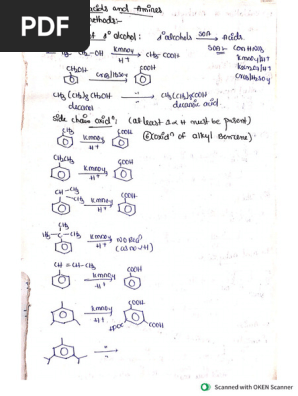 PDF
acids and Amines
methods:-
1° alcohol: 1° alcohols SOA → Acids.
CH₂-OH KMnO₄ H⁺ CH₃-COOH
SOA: Con HNO₃
KMnO₄/H⁺
K₂Cr₂O₇/H⁺
CrO₃/H₂SO₄
CH₂OH CrO₃/H₂SO₄ COOH
CH₃(CH₂)₈CH₂OH → CH₃(CH₂)₈COOH
decanol decanoic acid.
side chain oxidⁿ: (at least 1 α H must be present)
(Oxidⁿ of alkyl benzene)
CH₃ KMnO₄ H⁺ COOH
CH₂CH₃ KMnO₄ H⁺ COOH
CH-CH₃ CH₃ KMnO₄ H⁺ COOH
CH₃
H₃C-C-CH₃ KMnO₄ H⁺ NO Reqⁿ
(as no α-H)
CH=CH-CH₃ KMnO₄ H⁺ COOH
KMnO₄ H⁺ COOH
HOOC COOH
" "
Scanned with OKEN Scanner